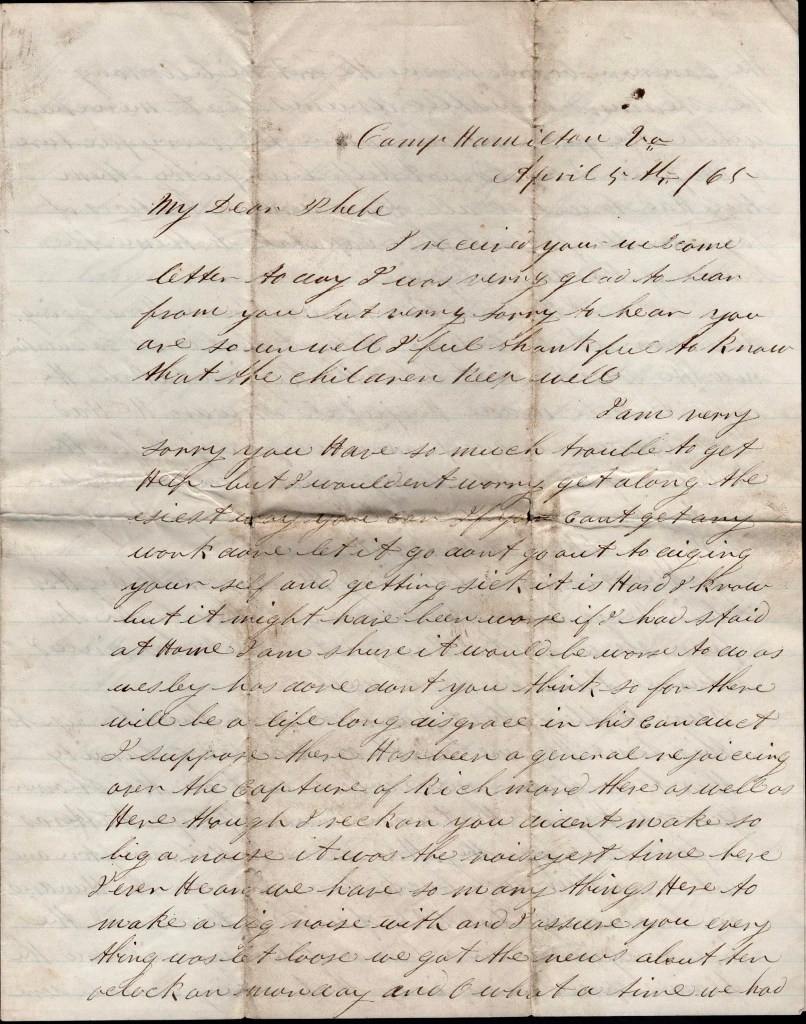 Camp Hamilton Va
April 5th /65
My Dear Phebe
I received your welcome
letter to day I was verry glad to hear
from you but verry sorry to hear you
are so unwell I ful thankful to know
that the children keep well
I am verry
sorry you Have so much trouble to get
Help but I wouldent worry get along the
esiest way you can If you cant get any
work done let it go dont go out to diging
your self and getting sick it is Hard I know
but it might have been worse if I had staid
at Home I am shure it would be worse to do as
wesley has done dont you think so for there
will be a life long disgrace in his conduct
I suppose there Has been a general rejoiceing
over the capture of Richmond there as well as
Here though I reckon you dident make so
big a noise it was the noiseyest time here
I ever Heard we have so many things Here to
make a big noise with and I assure you every
thing was let loose we got the news about ten
oclock on monday and O what a time we had